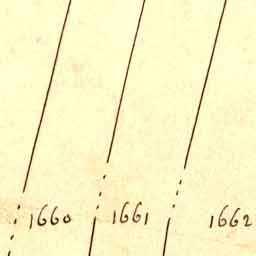 1660 1661 1662